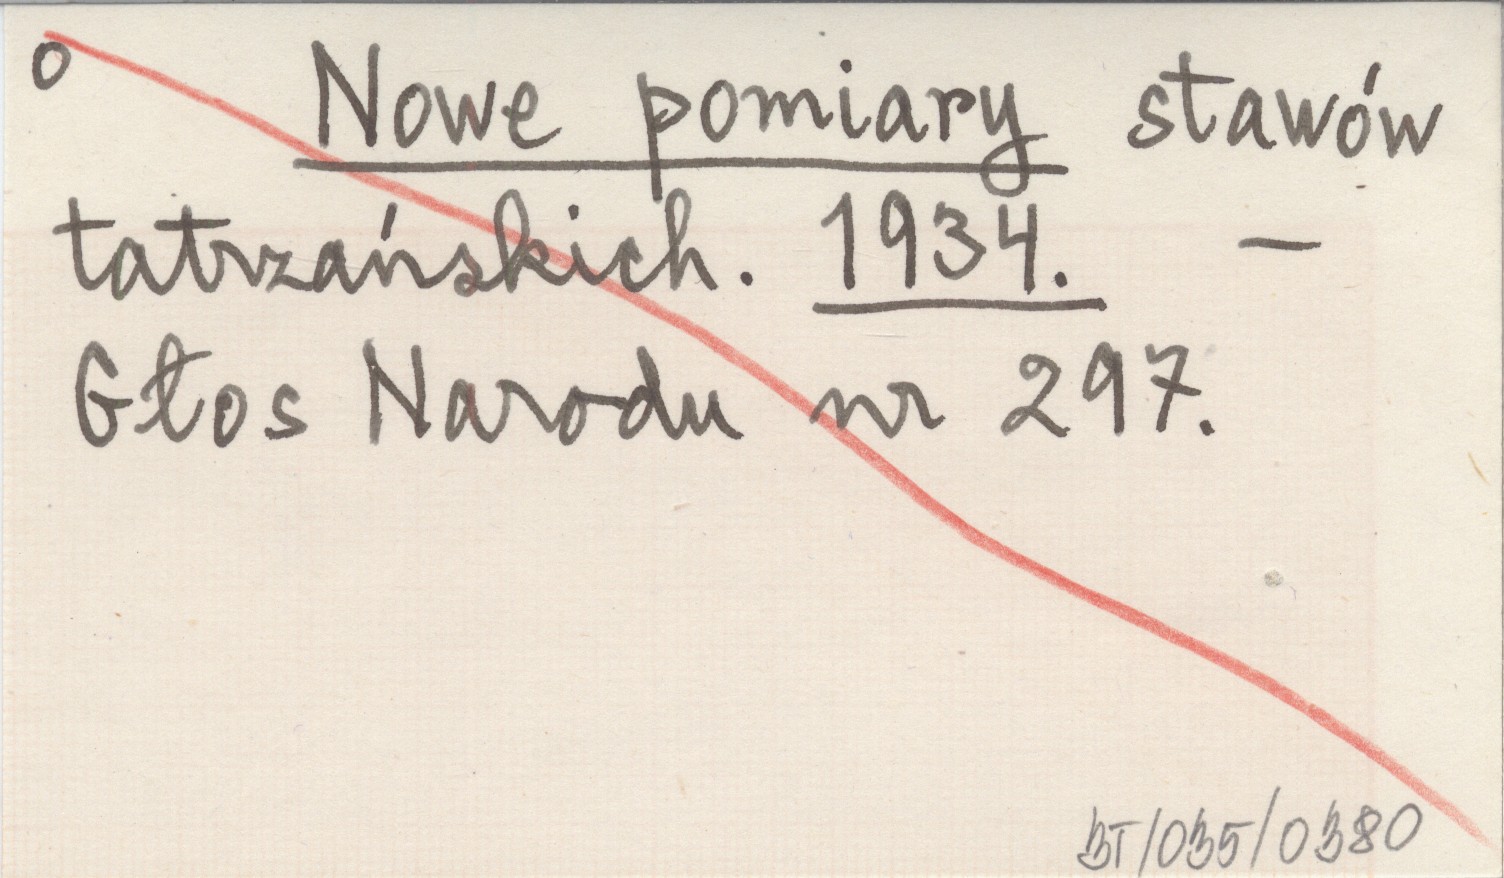 o Nowe pomiary stawów
tatrzańskich. 1934. —
Głos Narodu nr 297.
BT/035/0380